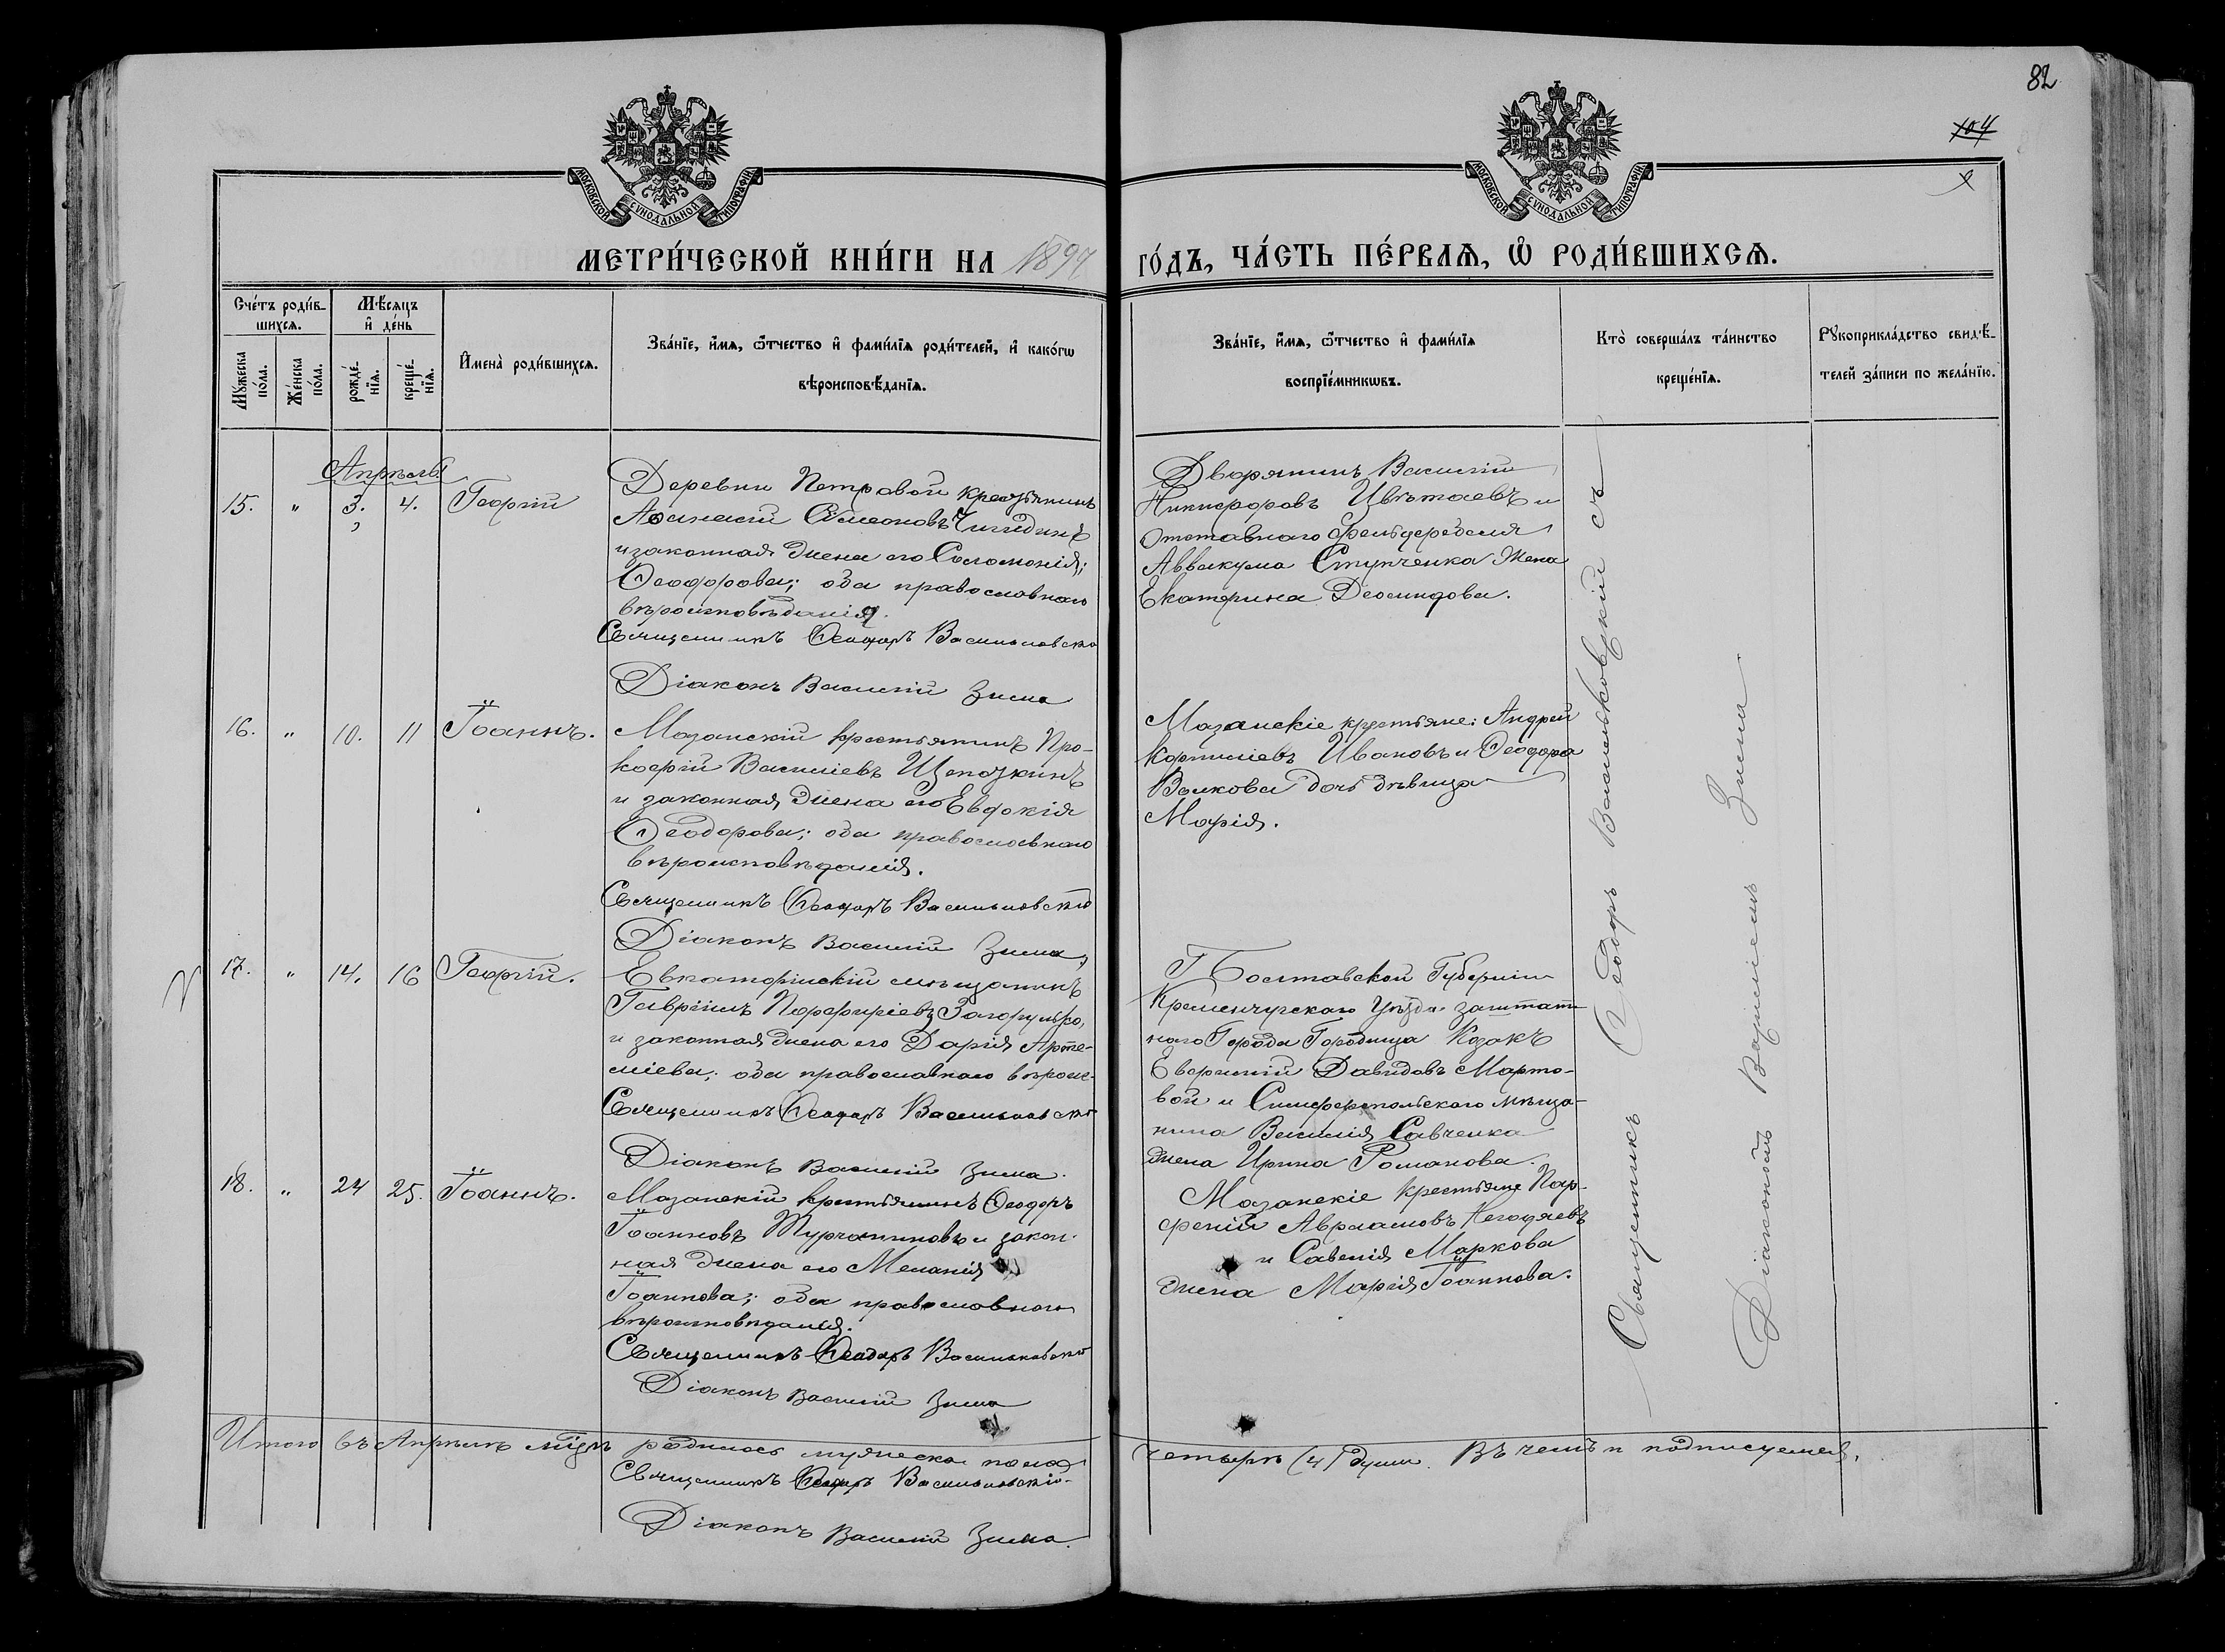 82
104
МОСКОВСКОЙ СѴНОДАЛЬНОЙ ТИПОГРАФІИ
МОСКОВСКОЙ СѴНОДАЛЬНОЙ ТИПОГРАФІИ
МЕТРИ́ЧЕСКОЙ КНИ́ГИ НА 1894
ГО́ДЪ, ЧА́СТЬ ПЕ́РВАѦ, Ѽ РОДИ́ВШИХСѦ.
Сче́тъ роди́в-
шихсѧ.
Мѣ́сѧцъ
и҆ де́нь
Мꙋжеска по́ла.
Же́нска по́ла.
рожде́-
нїѧ.
креще́-
нїѧ.
И҆мена̀ роди́вшихсѧ.
Зва́нїе, и҆́мѧ, ѻ҆́тчество и҆ фами́лїѧ роди́телей, и҆ како́гѡ
вѣроисповѣ́данїѧ.
Зва́нїе, и҆́мѧ, ѻ҆́тчество и҆ фами́лїѧ
воспрїе́мникѡвъ.
Кто̀ соверша́лъ та́инство
креще́нїѧ.
Рꙋкоприкла́дство свидѣ́-
телей за́писи по жела́нїю.
Апрѣль
15. " 3. 4. Георгій
Деревни Петровой крестьянинъ
Аѳанасій Симеоновъ
и законная жена его Соломонія
Ѳеодорова; оба православнаго
вѣроисповѣданія.
Священникъ Ѳеодоръ Васильковскій
Діаконъ Василій Зима
Дворянинъ Василій
Никифоровъ Цвѣтаевъ и
отставного фельдфебеля
Аввакума Ступченка жена
Екатерина
16. " 10. 11 Іоаннъ.
Мазанскій крестьянинъ Про-
кофій Василіевъ Щепоткинъ
и законная жена его Евдокія
Ѳеодорова; оба православнаго
вѣроисповѣданія.
Священникъ Ѳеодоръ Васильковскій
Діаконъ Василій Зима
Мазанскіе крестьяне: Андрей
Корниліевъ Ивановъ и Ѳеодора
Волкова дочь дѣвица
Марія.
17. " 14. 16 Георгій.
Евпаторійскій мѣщанинъ
Гавріилъ Порфиріевъ Загорулько,
и законная жена его Дарія Арте-
міева; оба православнаго вѣроис.
Священникъ Ѳеодоръ Васильковскій
Діаконъ Василій Зима.
Полтавской Губерніи
Кременчугскаго Уѣзда заштат-
наго Города Городища Козакъ
Давидовъ Марто-
вой и Симферопольскаго мѣща-
нина Василія Савченка
жена Ирина Романова.
18. " 24 25. Іоаннъ.
Мазанскій крестьянинъ Ѳеодоръ
Іоанновъ Турчаниновъ и закон-
ная жена его Меланія
Іоаннова; оба православнаго
вѣроисповѣданія.
Священникъ Ѳеодоръ Васильковскій
Діаконъ Василій Зима
Мазанскіе крестьяне Пар-
феній Авраамовъ Негодяевъ
и Савелія Маркова
жена Марія Іоаннова.
Священникъ Ѳеодоръ Васильковскій съ
Діакономъ Василіемъ Зима
Итого въ Апрѣлѣ мцѣ родилось мужеска пола
четыре (4) души. Въ чемъ и подписуемся.
Священникъ Ѳеодоръ Васильковскій
Діаконъ Василій Зима.